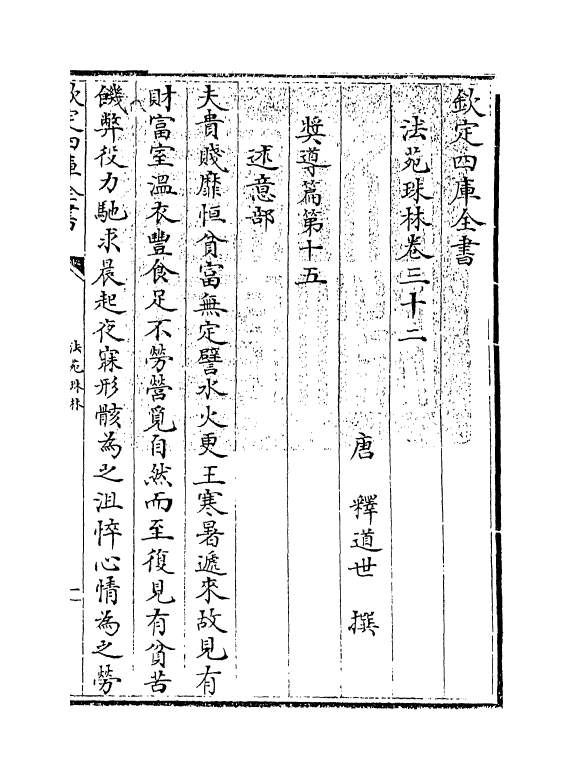 欽定四庫全書
法苑珠林卷三十二
唐 釋道世 撰
奬導篇第十五
述意部
夫貴賤靡恒貧富無定譬水火更王寒暑遞來故見有
財富室溫衣豐食足不勞營覓自然而至復見有貧苦
饑弊役力馳求晨起夜寐形骸為之沮悴心情為之勞
欽定四庫全書
法苑珠林
一